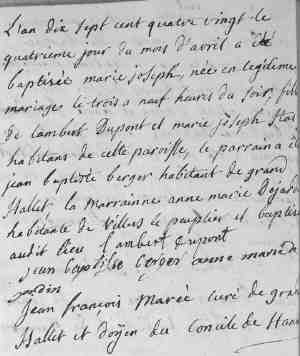 L'an dix sept cent quatre vingt le
quatrieme jour du mois d'avril a été
baptisée marie joseph, née en legitime
mariage le trois a neuf heures du soir, fille
de lambert Dupont et marie joseph
habitans de cette paroisse, le parrain a été
jean baptiste berger habitant de grand
Hallet la marrainne anne marie
habitante de Villers le peuplier et baptisée
audit lieu Lambert dupont
jean baptiste anne marie de
jardin
Jean françois Marée curé de grand
Hallet et doÿen du Concile de